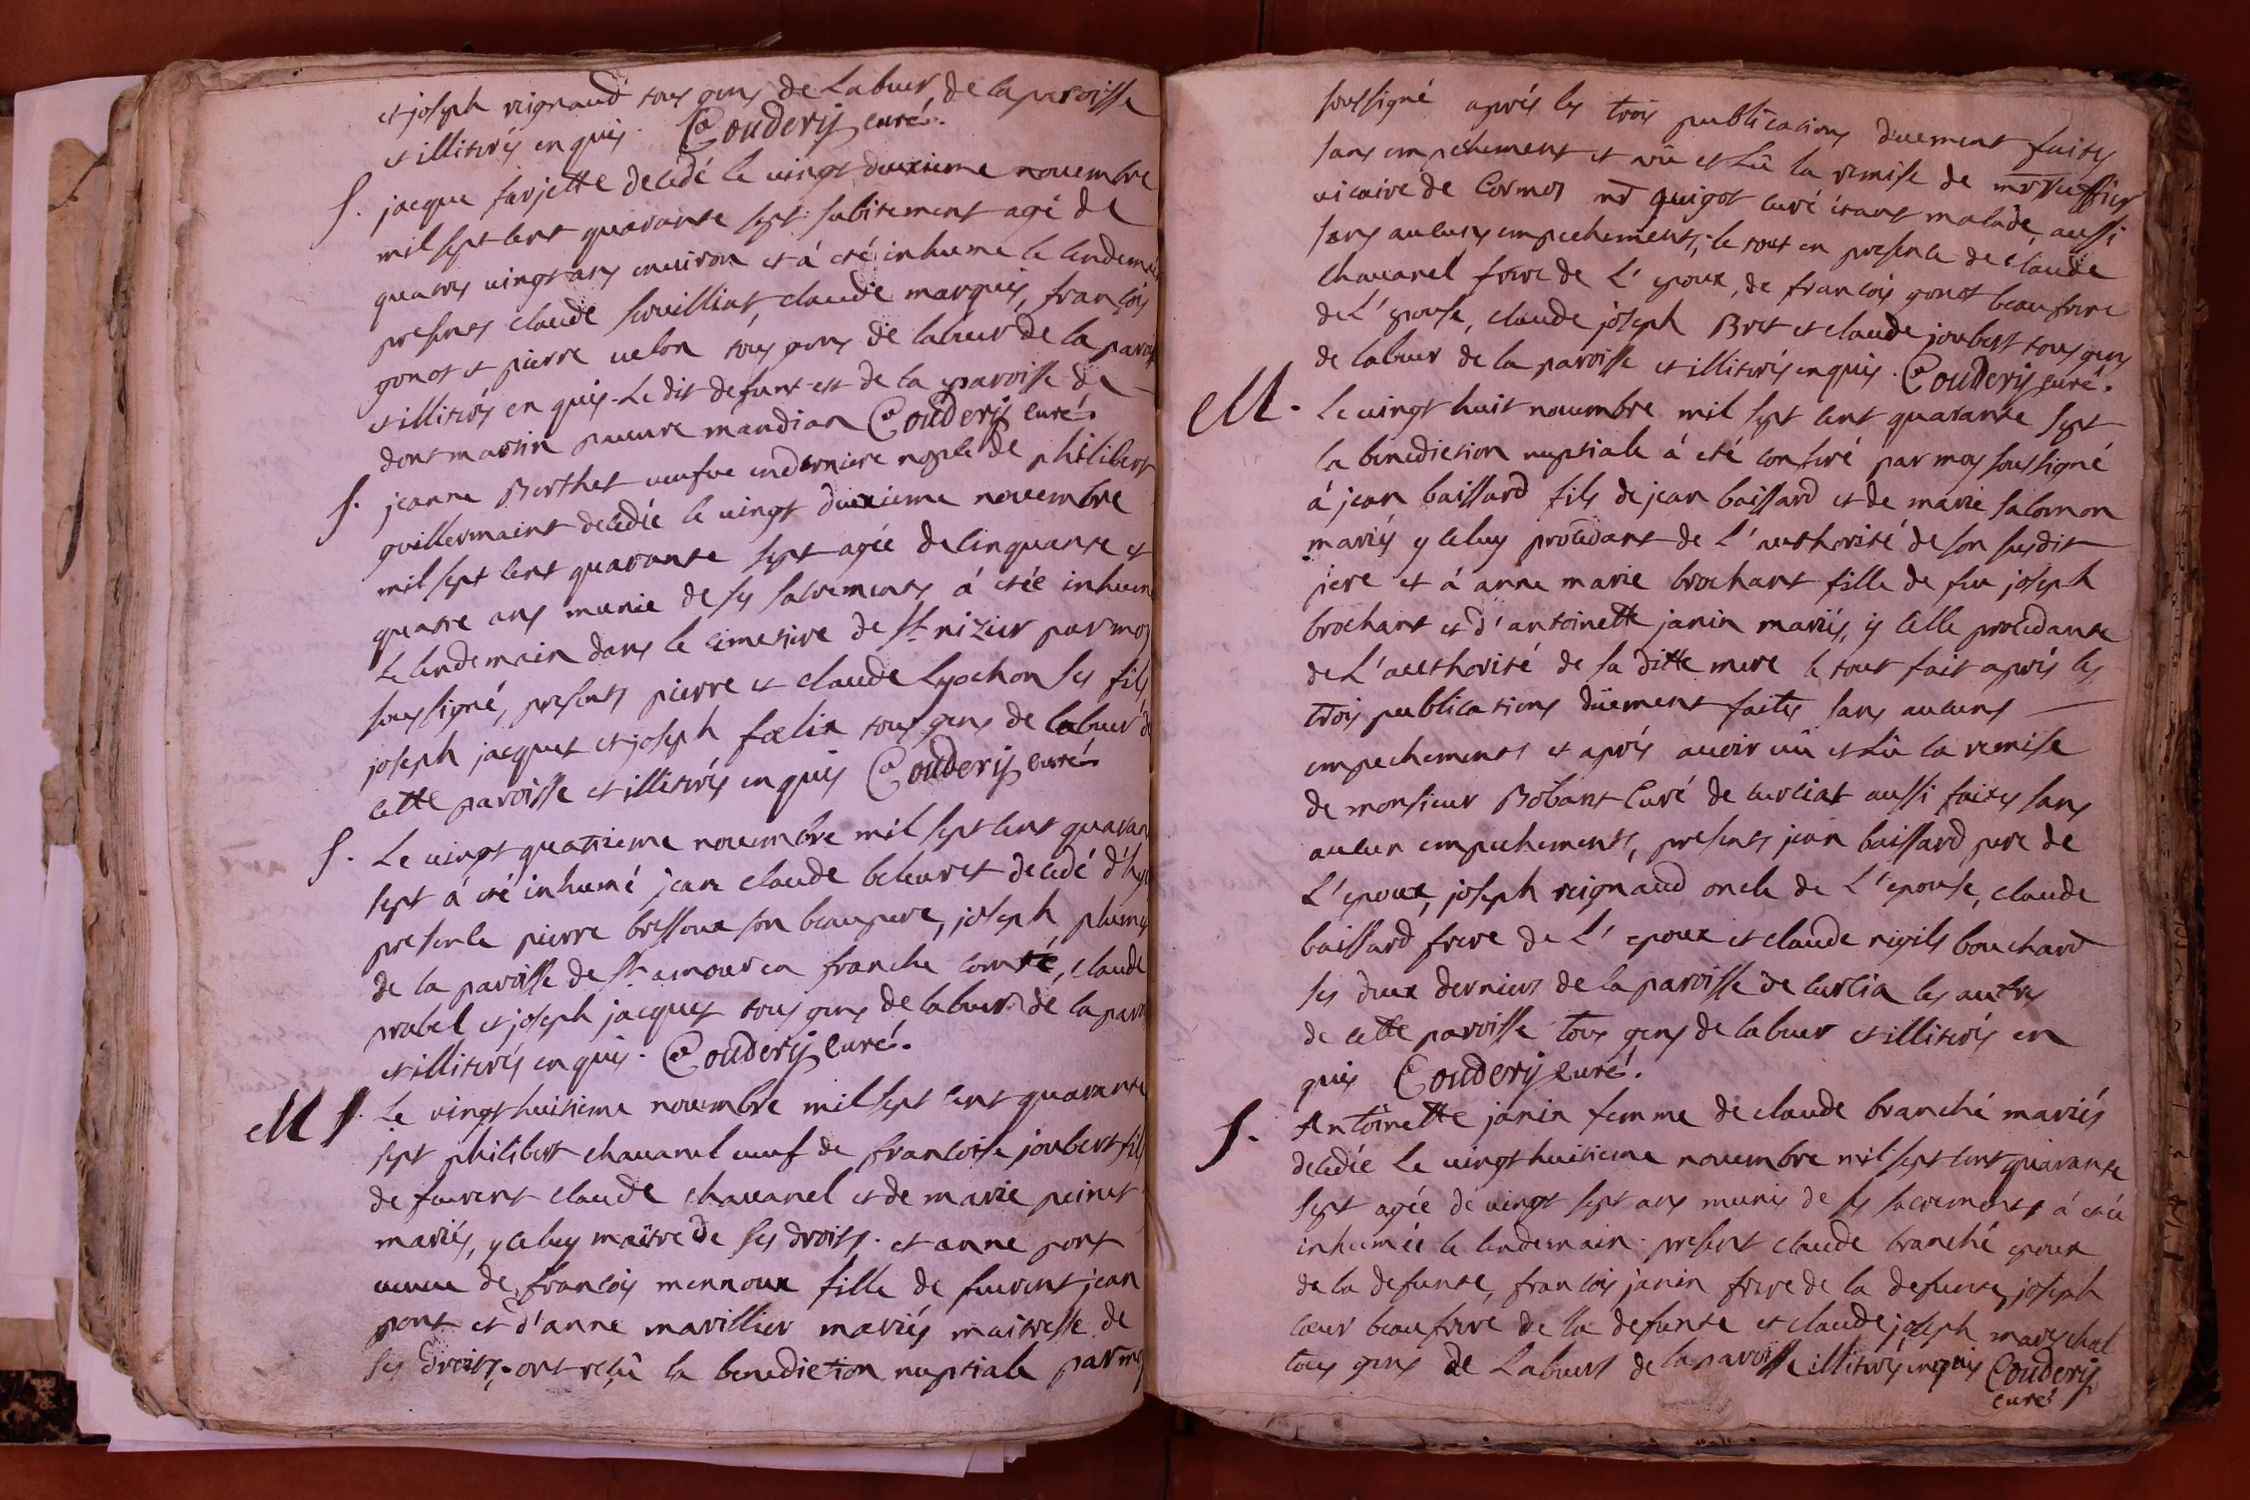 et joseph reignaud tous gens de Labeur de la paroisse
et illiterés enquis. Couderij curé.
S. jacque farjette decedé le vingt deuxieme novembre
mil sept cent quarante sept subitement agé de
quatre vingt ans environ et à eté inhume le lendemai
presents claude sevilliat, claude marquis, françois
gonot et pierre velon tous gens de labeur de la paroi
et illiterés enquis. Le dit defunt est de la paroisse de
dont martin pauvre mandian Couderij curé.
S. jeanne Berthet veufve en derniere nopce de philibert
guillermaint decedée le vingt deuxieme novembre
mil sept cent quarante sept agée de cinquante et
quatre ans munie de ses sacrements à etée inhum
le lendemain dans le cimetiere de st nizier par moy
soussigné, presents pierre et claude Lyochon ses fils
joseph jacquet et joseph fœlix tous gens de labeur de
cette paroisse et illiterés enquis Couderij curé
S. Le vingt quatrieme novembre mil sept cent quaran
sept à eté inhumé jean claude beleuret decedé d'hye
presence pierre bressoux son beaupere, joseph plumy
de la paroisse de st amour en franche comté, claude
prabel et joseph jacquet tous gens de labeur de la paro
et illiterés enquis. Couderij curé.
M S. Le vingt huitieme novembre mil sept cent quarante
sept philibert chavanel veuf de francoise joubert fils
de feurent claude chavanel et de marie peinet
mariés, y celuy maître de ses droits. et anne pont
veuve de francois mennoux fille de feurent jean
pont et d'anne marillier mariés maitresse de
ses droits, ont reçû la benediction nuptiale par moy
soussigné après les trois publications düement faites
sans empechement et vû et lû la remise de mr ruffier
vicaire de Cormoz mr guigot curé étant malade, aussi
sans aucuns empechements, le tout en presence de claude
chavanel frere de L'epoux, de francois gonot beaufrere
de L'epouse, claude joseph Bret et claude joubert tous gens
de labeur de la paroisse et illiterés enquis. Couderij curé.
M. Le vingt huit novembre mil sept cent quarante sept
la benediction nuptiale à eté conferé par moy soussigné
à jean baissard fils de jean baissard et de marie salomon
mariés y celuy procedant de L'authorité de son susdit
pere et à anne marie brochant fille de feu joseph
brochant et d'antoinette janin mariés, y celle procedante
de L'aucthorité de sa ditte mere le tout fait après les
trois publications düement faites sans aucuns
empechements et après avoir vû et lû la remise
de monsieur Bobant Curé de curciat aussi faites sans
aucun empechements, presents jean baissard pere de
L'epoux, joseph reignaud oncle de L'epouse, claude
baissard frere de L'epoux et claude rigils bouchard
ses deux derniers de la paroisse de curcia les autres
de cette paroisse tous gens de labeur et illiterés en
quis Couderij curé.
S. Antoinette janin femme de claude branché mariés
decedée Le vingt huitieme novembre mil sept cent quarante
sept agée de vingt sept ans munis de ses sacrements à etée
inhumée le lendemain. present claude branché epoux
de la defunte, francois janin frere de la defunte, joseph
cœur beaufrere de la defunte et claude joseph mareschal
tous gens de Labeurs de la paroisse illiterés enquis Couderij
curé